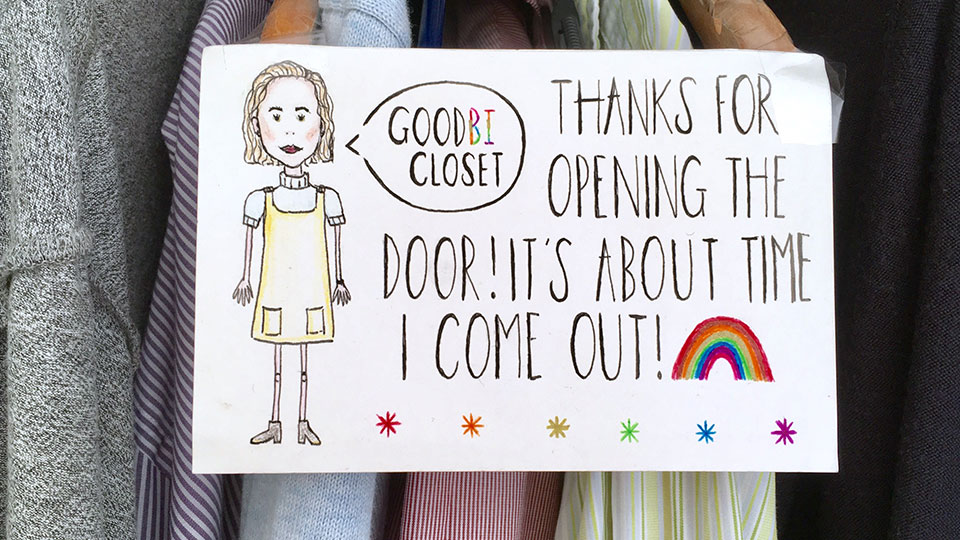 GOODBI
CLOSET
THANKS FOR
OPENING THE
DOOR! IT'S ABOUT TIME
I COME OUT!